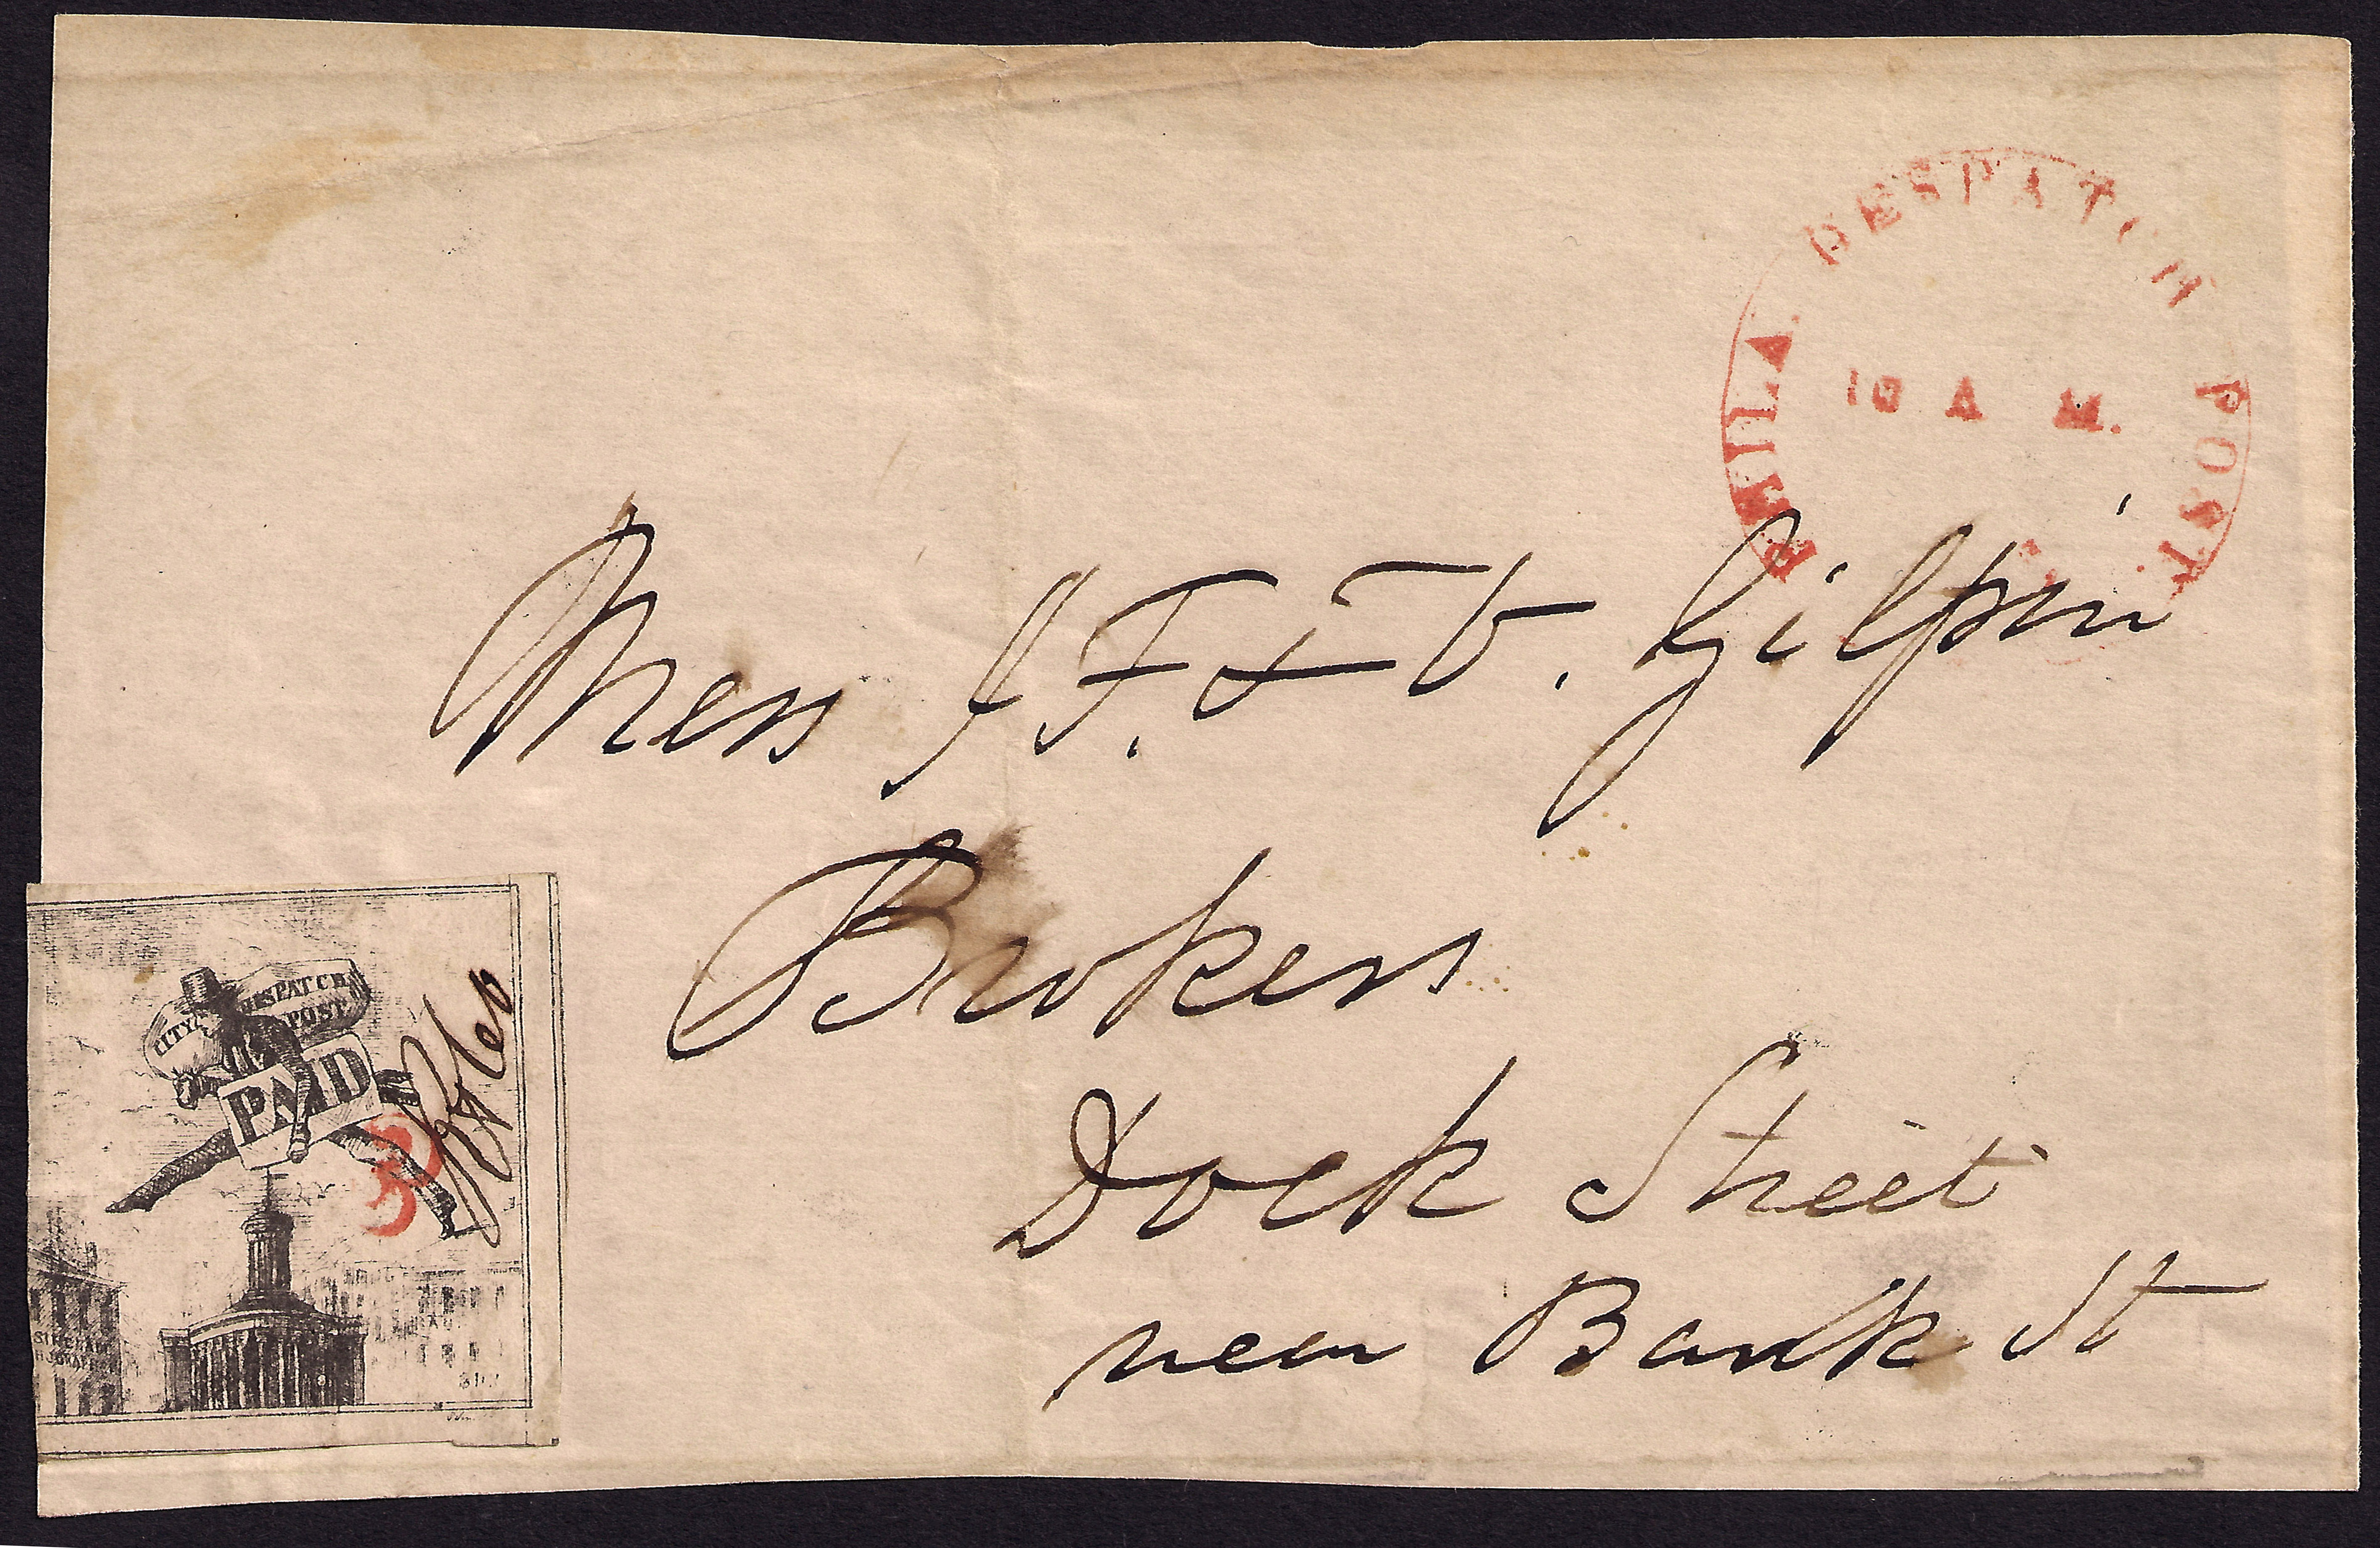 PHILA DESPATCH POST
10 A M.
Mess J F. & V. Gilpin
Brokers
Dock Street
near Bank St
CITY DESPATCH
POST
PAID
3